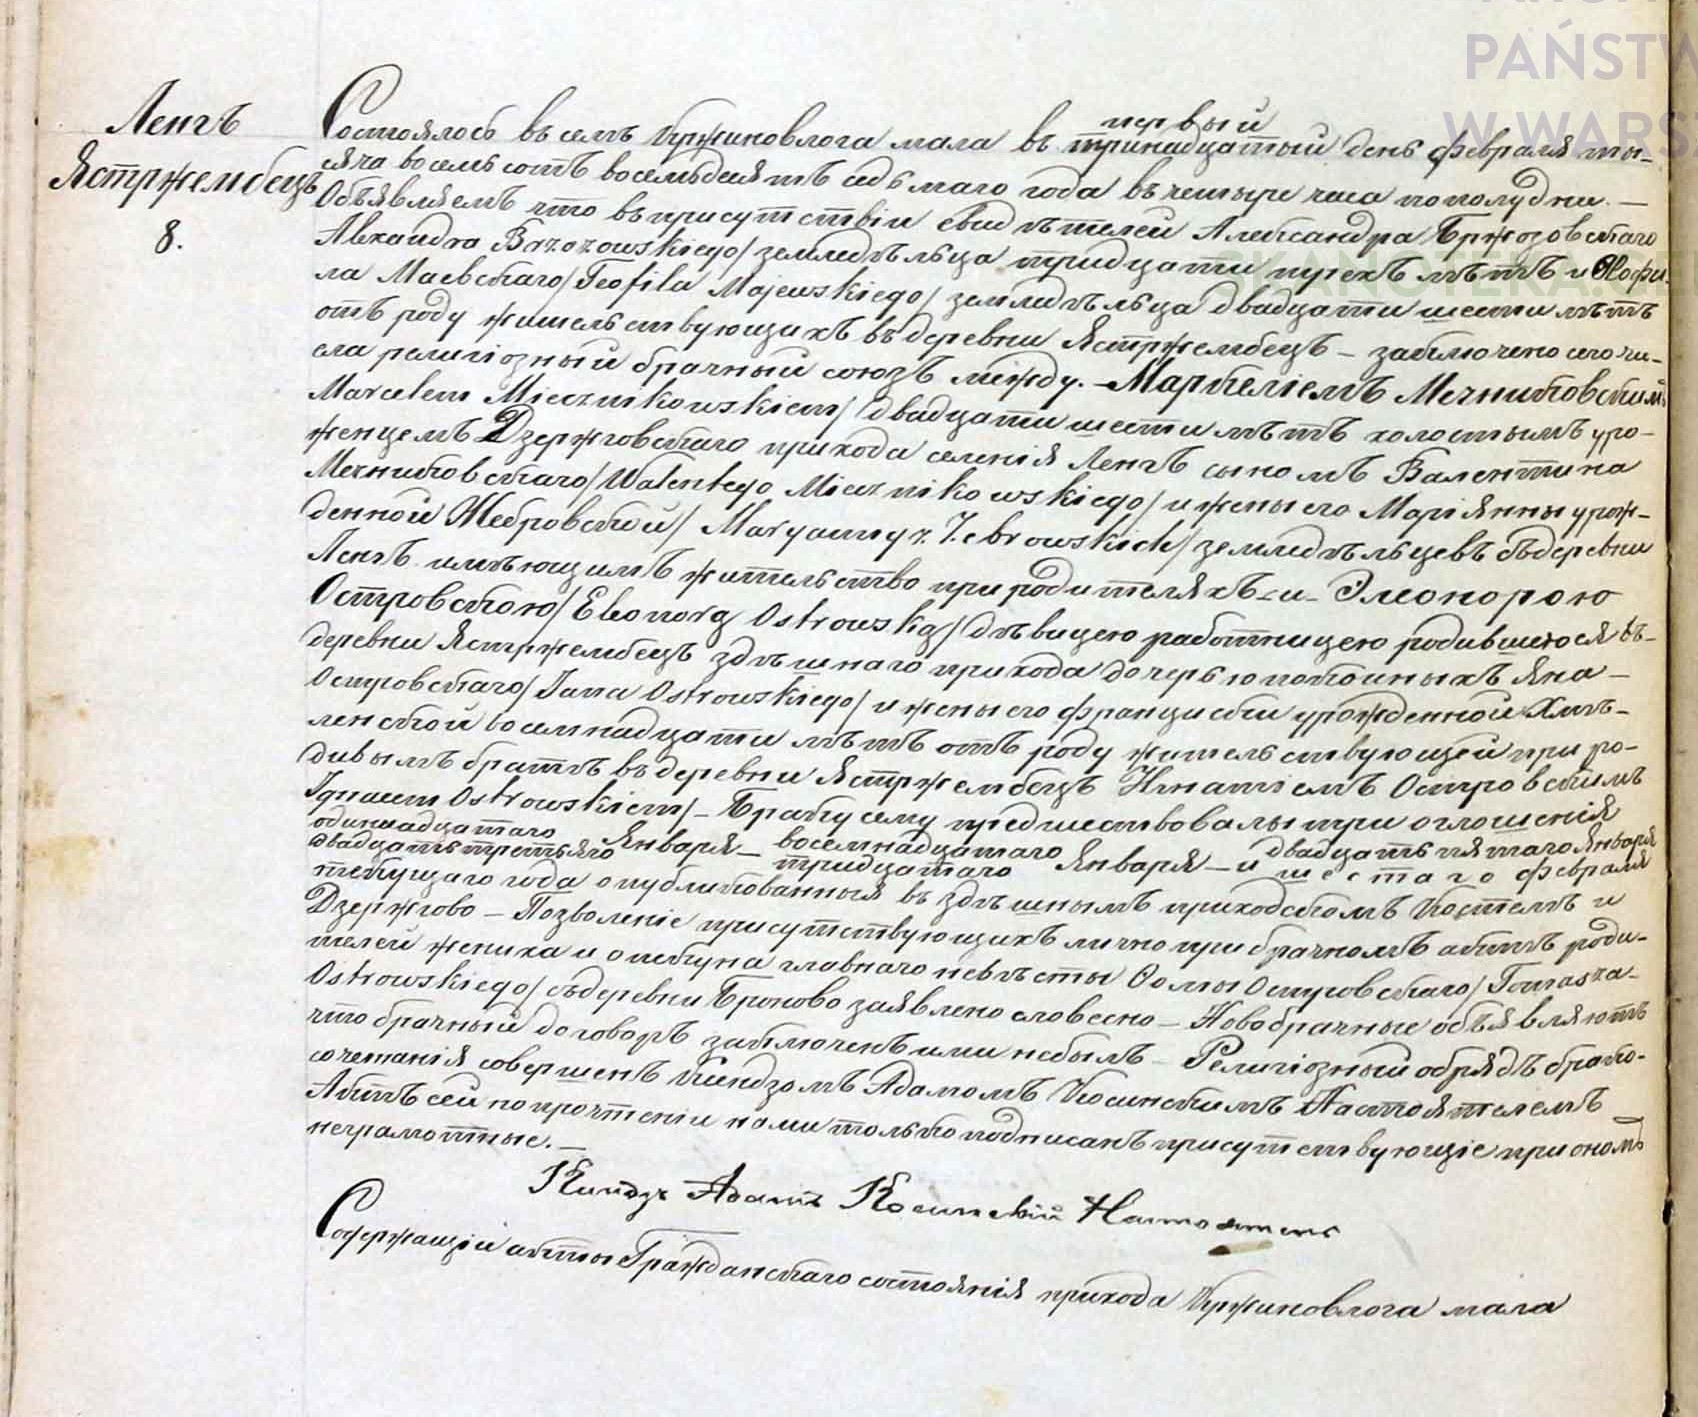 PAŃSTW
W WARS
SKANOTEKA
Ленгъ
Ястржембецъ
8.
первый
Состоялось въ селѣ Кржиновлога мала въ тринадцатый день февраля ты-
сяча восемьсотъ восемьдесятъ седьмаго года въ четыре часа пополудни. —
Объявляемъ что въ присутствіи свидѣтелей Александра Бржозовскаго
/Alexandra Brzozowskiego/ земледѣльца тридцати трехъ лѣтъ и Ѳеофи-
ла Маевскаго /Teofila Majewskiego/ земледѣльца двадцати шести лѣтъ
отъ роду жительствующихъ въ деревни Ястржембецъ – заключено сего чи-
сла религіозный брачный союзъ между. – Марцеліемъ Мечниковскимъ
Marcelem Miecznikowskiem/ двадцати шести лѣтъ холостымъ уро-
женцемъ Дзержговскаго прихода селенія Ленгъ сыномъ Валентина
Мечниковскаго /Walentego Miecznikowskiego/ и жены его Маріянны урож-
денной Жебровской /Maryanny z Żebrowskich/ земледѣльцевъ въ деревни
Ленгъ имѣющимъ жительство при родителяхъ – и – Элеонорою
Островскою /Eleonorą Ostrowską/ дѣвицею работницею родившеюся въ –
деревни Ястржембецъ здѣшнаго прихода дочерью покойныхъ Яна –
Островскаго /Jana Ostrowskiego/ и жены его Франциски урожденной Хмѣ-
ленской восемнадцати лѣтъ отъ роду жительствующей при ро-
дивымъ братѣ въ деревни Ястржембецъ Игнатіемъ Островскимъ
Ignacem Ostrowskiem/ – Браку сему предшествовалы три оглошенія
одиннадцатаго восемнадцатаго двадцать пятаго Января
двадцать третьяго Января – тридцатаго Января – и шестаго февраля
текущаго года опубликованныя въ здѣшнымъ приходскомъ костелѣ и
Дзержгово – Позволеніе присутствующихъ лично при брачномъ актѣ роди-
телей жениха и опекуна главнаго невѣсты Ѳомы Островскаго /Tomasza –
Ostrowskiego/ съ деревни Броново заявлено словесно – Новобрачные объявляютъ
что брачный договоръ заключенъ ими небылъ – Религіозный обрядъ брако-
сочетанія совершенъ Ксендзомъ Адамомъ Косинскимъ Настоятелемъ
Актъ сей по прочтеніи нами только подписанъ присутствующіе при ономъ
неграмотные. –
Ксендзъ Адамъ Косинскій Настоятель
Содержащій акты Гражданскаго состоянія прихода Кржиновлога мала